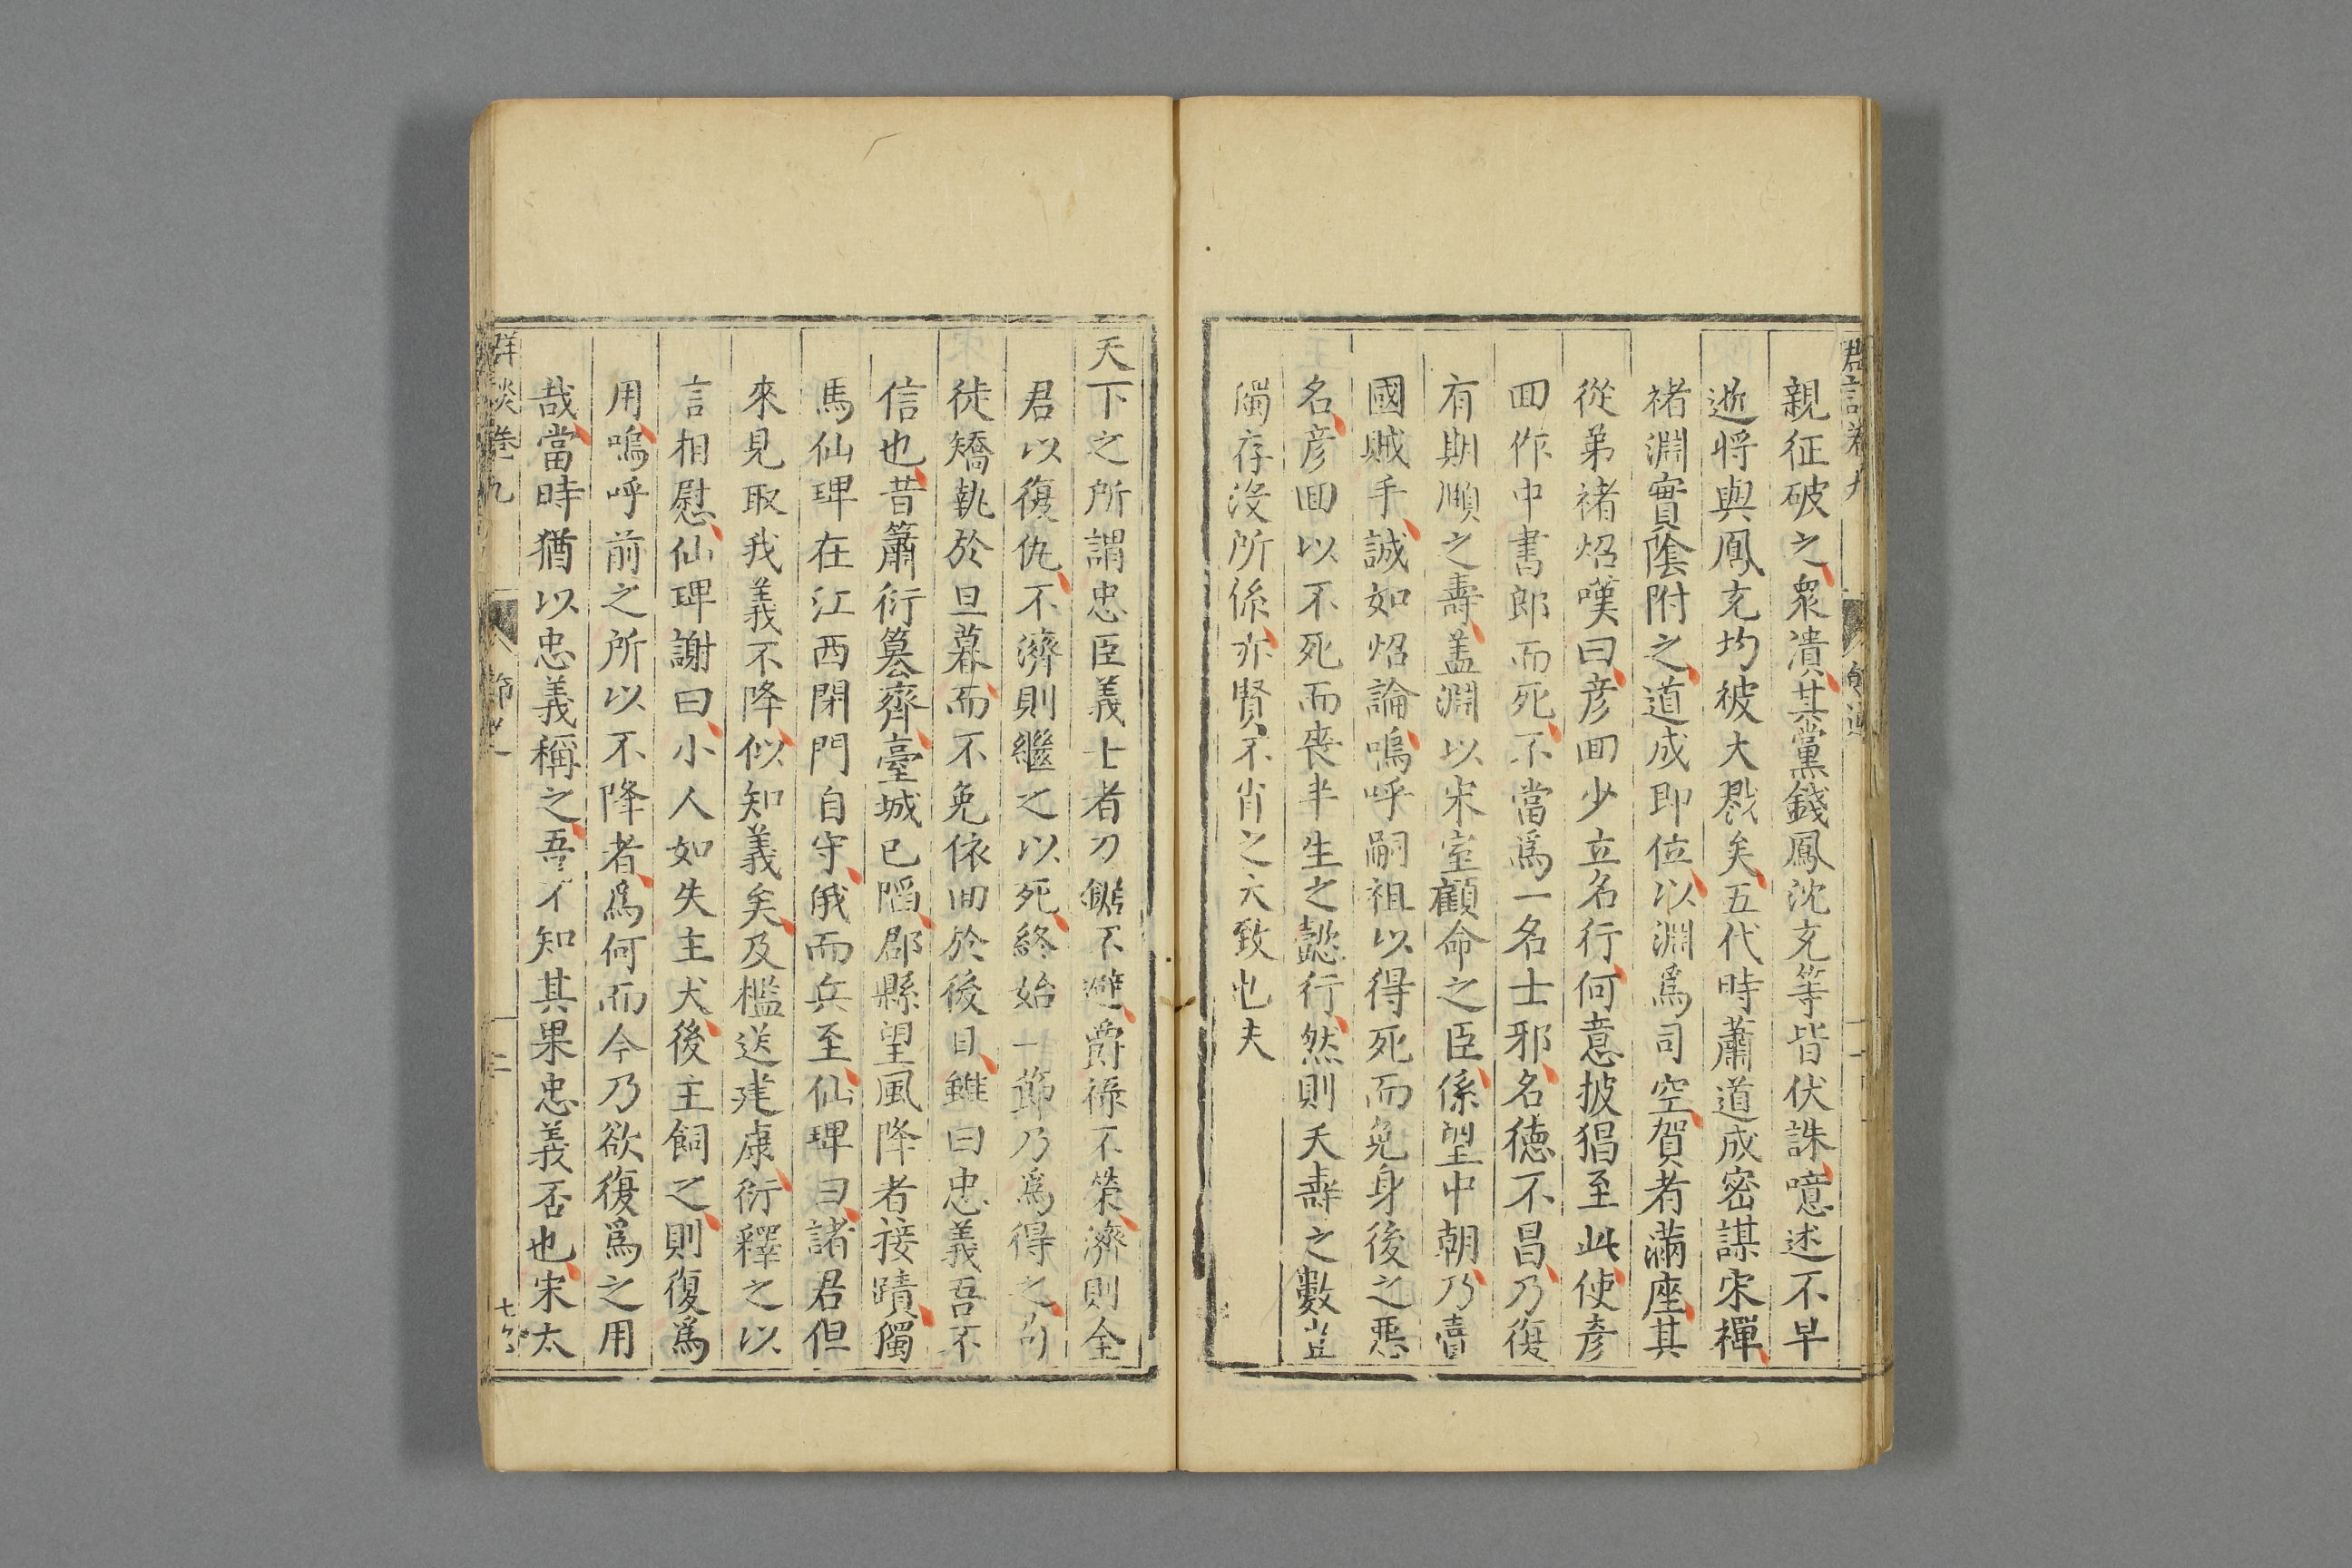 親征破之衆潰其黨錢鳳沈充等皆伏誅噫述不早
逝將與鳳充均被大戮矣五代時蕭道成密謀宋禪
褚淵實陰附之道成即位以淵爲司空賀者滿座其
從弟褚炤嘆曰彦回少立名行何意披猖至此使彦
回作中書郎而死不當爲一名士邪名徳不昌乃復
有期頤之壽盖淵以宋室顧命之臣係望中朝乃賣
國賊手誠如炤論嗚呼嗣祖以得死而免身後之惡
名彦回以不死而喪半生之懿行然則夭壽之數豈
獨存没所係亦賢不肖之大致也夫
天下之所謂忠臣義士者刀鋸不避爵祿不榮濟則全
君以復仇不濟則繼之以死終始一節乃爲得之
徒矯執於旦暮而不免依回於後日雖曰忠義吾不
信也昔簫衍簒齊臺城已陷郡縣望風降者接蹟獨
馬仙琕在江西閉門自守俄而兵至仙琕曰諸君但
來見取我義不降似知義矣及檻送建康衍釋之以
言相慰仙琕謝曰小人如失主犬後主飼之則復爲
用嗚呼前之所以不降者爲何而今乃欲復爲之用
哉當時猶以忠義稱之吾不知其果忠義否也宋太
群談卷九